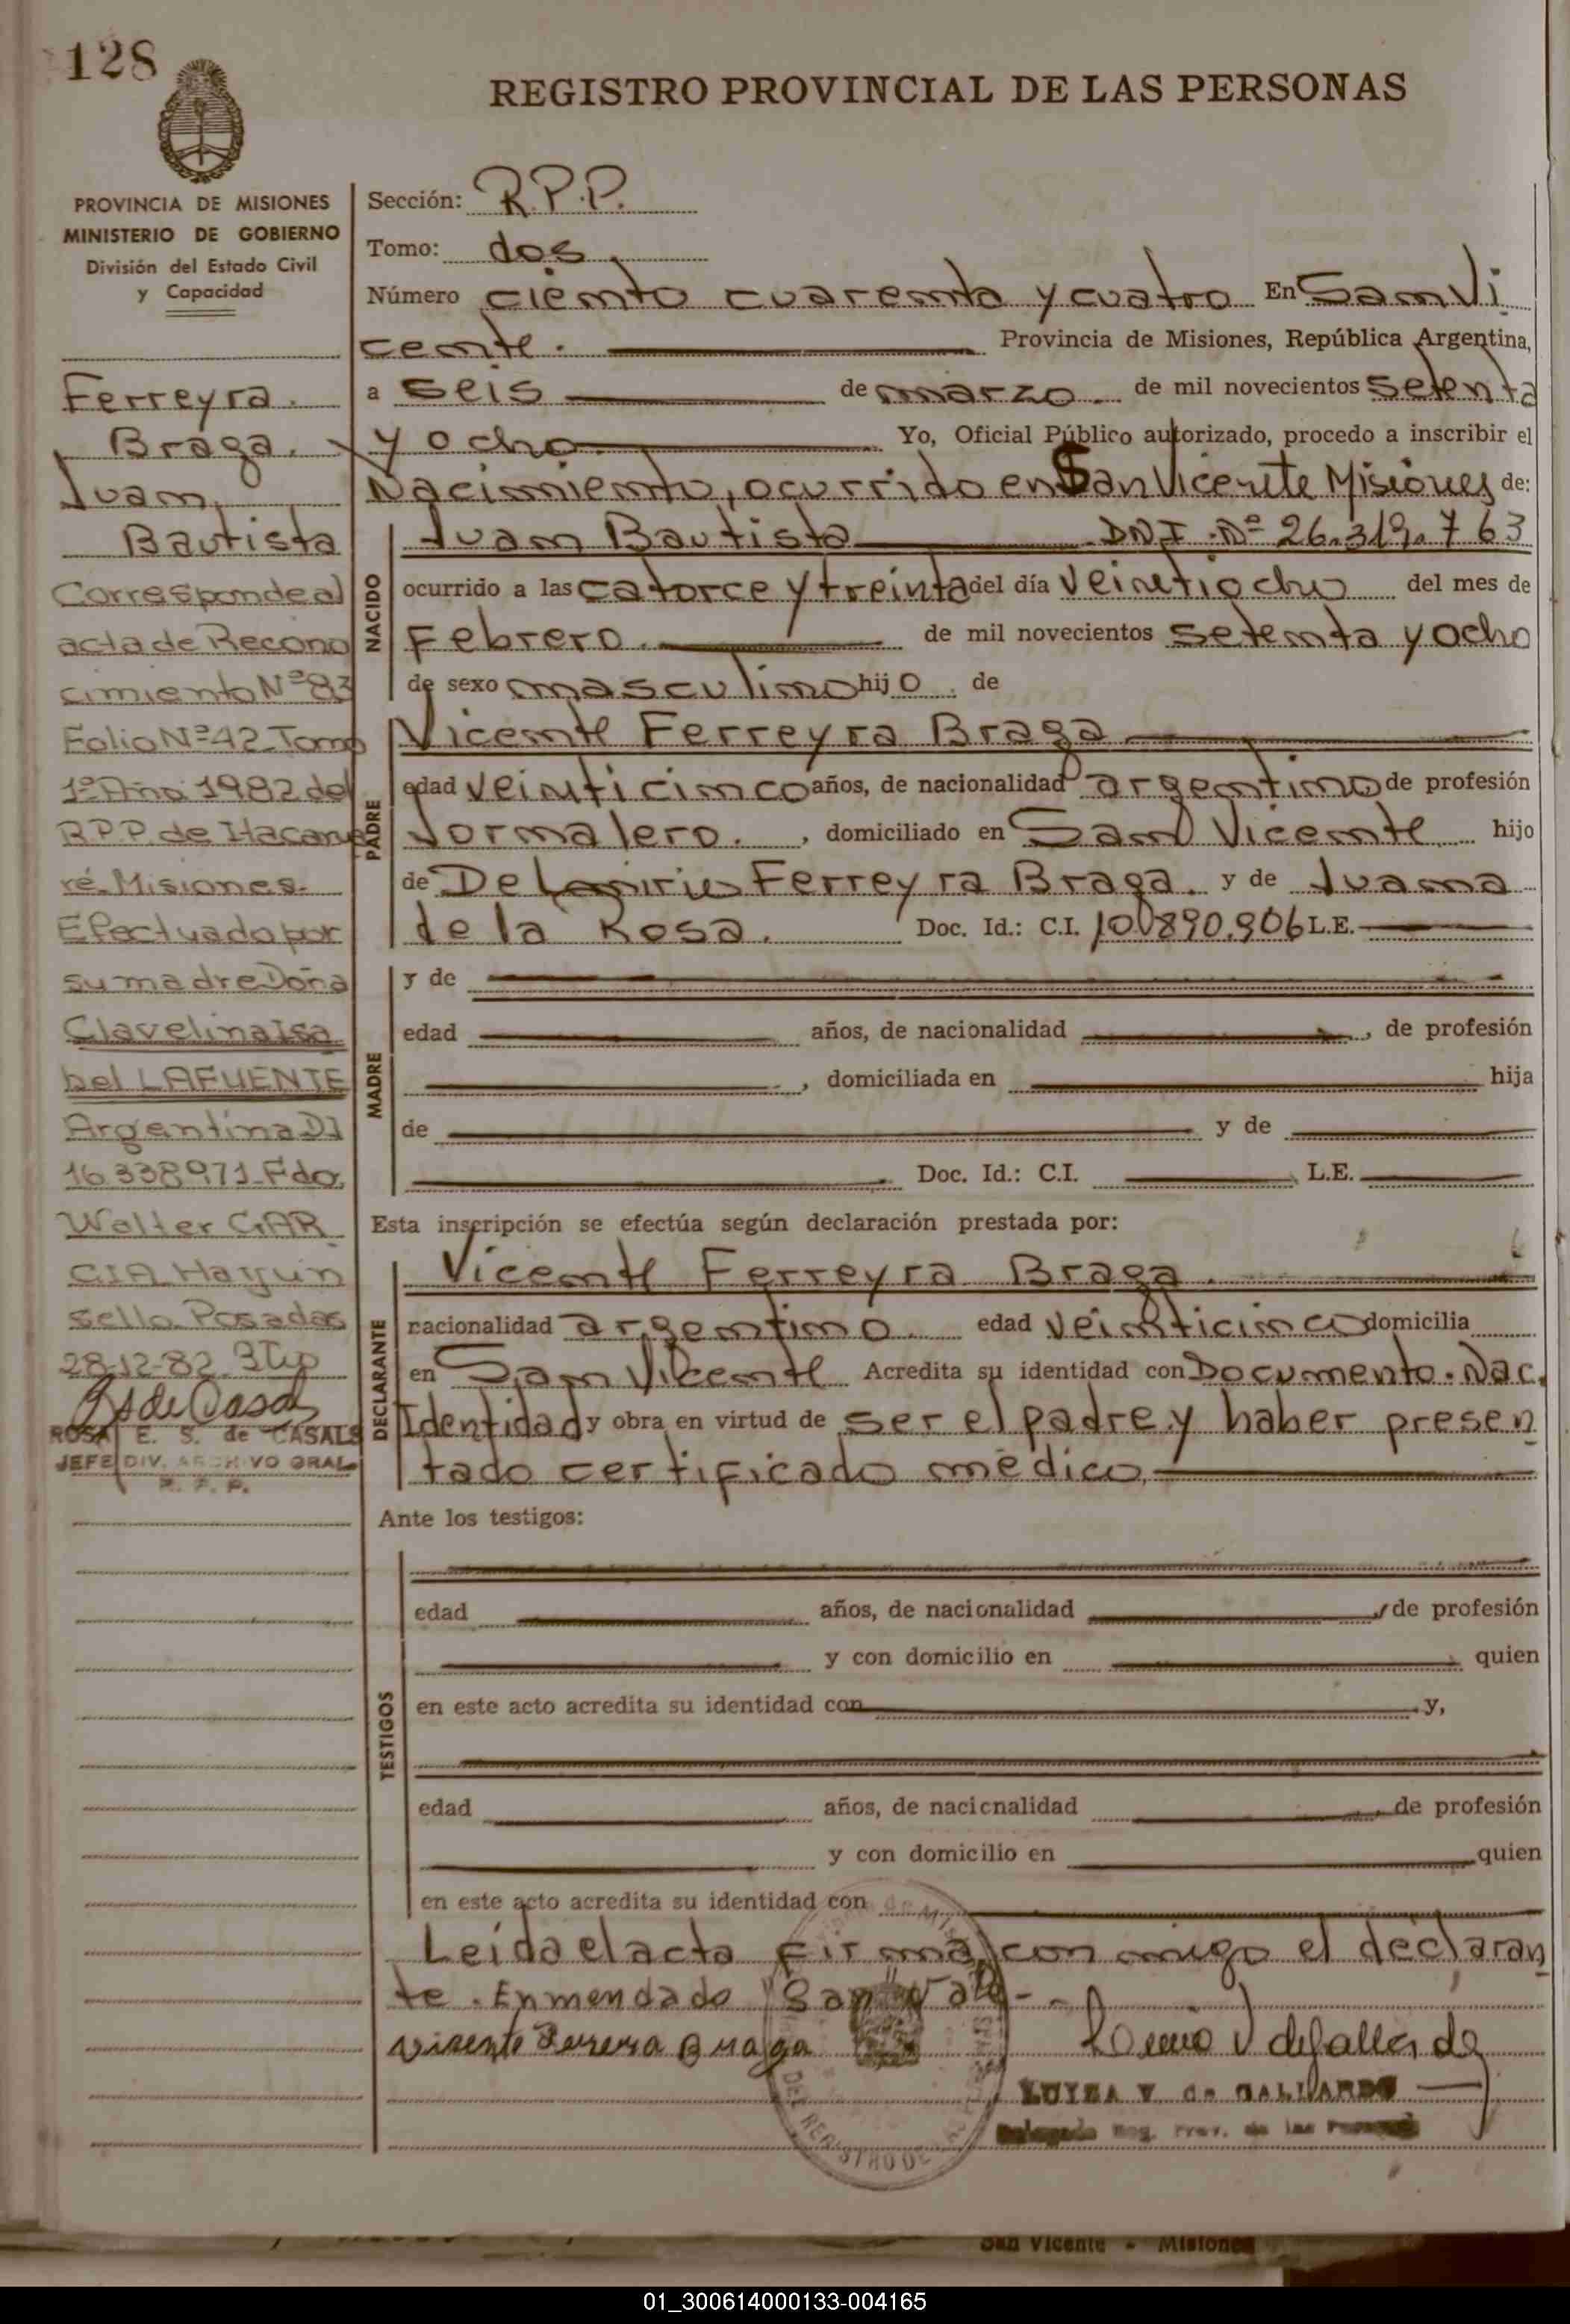 128
REGISTRO PROVINCIAL DE LAS PERSONAS
PROVINCIA DE MISIONES
MINISTERIO DE GOBIERNO
División del Estado Civil
y Capacidad
Ferreyra.
Braga.
Juan
Bautista
Corresponde al
acta de Recono
cimiento Nº 83
Folio Nº 42 Tomo
1º Año 1982 del
R.P.P. de Itacarua
ré Misiones.
Efectuado por
su madre Doña
Clavelina Isa
bel LAFUENTE
Argentina DI
16.338.971 Fdo.
Walter GAR
CIA Hay un
sello Posadas
28-12-82
ROSA E. S. de CASALS
JEFE DIV. ARCHIVO GRAL.
R. P. P.
Sección: R.P.P.
Tomo: dos
Número ciento cuarenta y cuatro En San Vi
cente. Provincia de Misiones, República Argentina,
a seis de marzo de mil novecientos setenta
y ocho Yo, Oficial Público autorizado, procedo a inscribir el
Nacimiento, ocurrido en San Vicente Misiones de:
NACIDO
Juan Bautista DNI. Nº 26.319.763
ocurrido a las catorce y treinta del día veintiocho del mes de
Febrero. de mil novecientos setenta y ocho
de sexo masculino hijo de
PADRE
Vicente Ferreyra Braga
edad veinticinco años, de nacionalidad argentino de profesión
Jornalero. , domiciliado en San Vicente hijo
de Ferreyra Braga. y de Juana
de la Rosa. Doc. Id.: C.I. 10.890.906 L.E.
MADRE
y de
edad años, de nacionalidad , de profesión
, domiciliada en hija
de y de
Doc. Id.: C.I. L.E.
Esta inscripción se efectúa según declaración prestada por:
DECLARANTE
Vicente Ferreyra Braga.
nacionalidad argentino. edad veinticinco domicilia
en San Vicente Acredita su identidad con Documento. Nac.
Identidad y obra en virtud de ser el padre y haber presen
tado certificado médico
Ante los testigos:
TESTIGOS
edad años, de nacionalidad de profesión
y con domicilio en quien
en este acto acredita su identidad con y,
edad años, de nacionalidad de profesión
y con domicilio en quien
en este acto acredita su identidad con
Leída el acta firma con migo el declaran
te. Enmendado "San" Vale
Vicente Ferreyra Braga
LUISA V de GALLARDO
Delegada Reg. Prov. de las Personas
San Vicente - Misiones
01_300614000133-004165